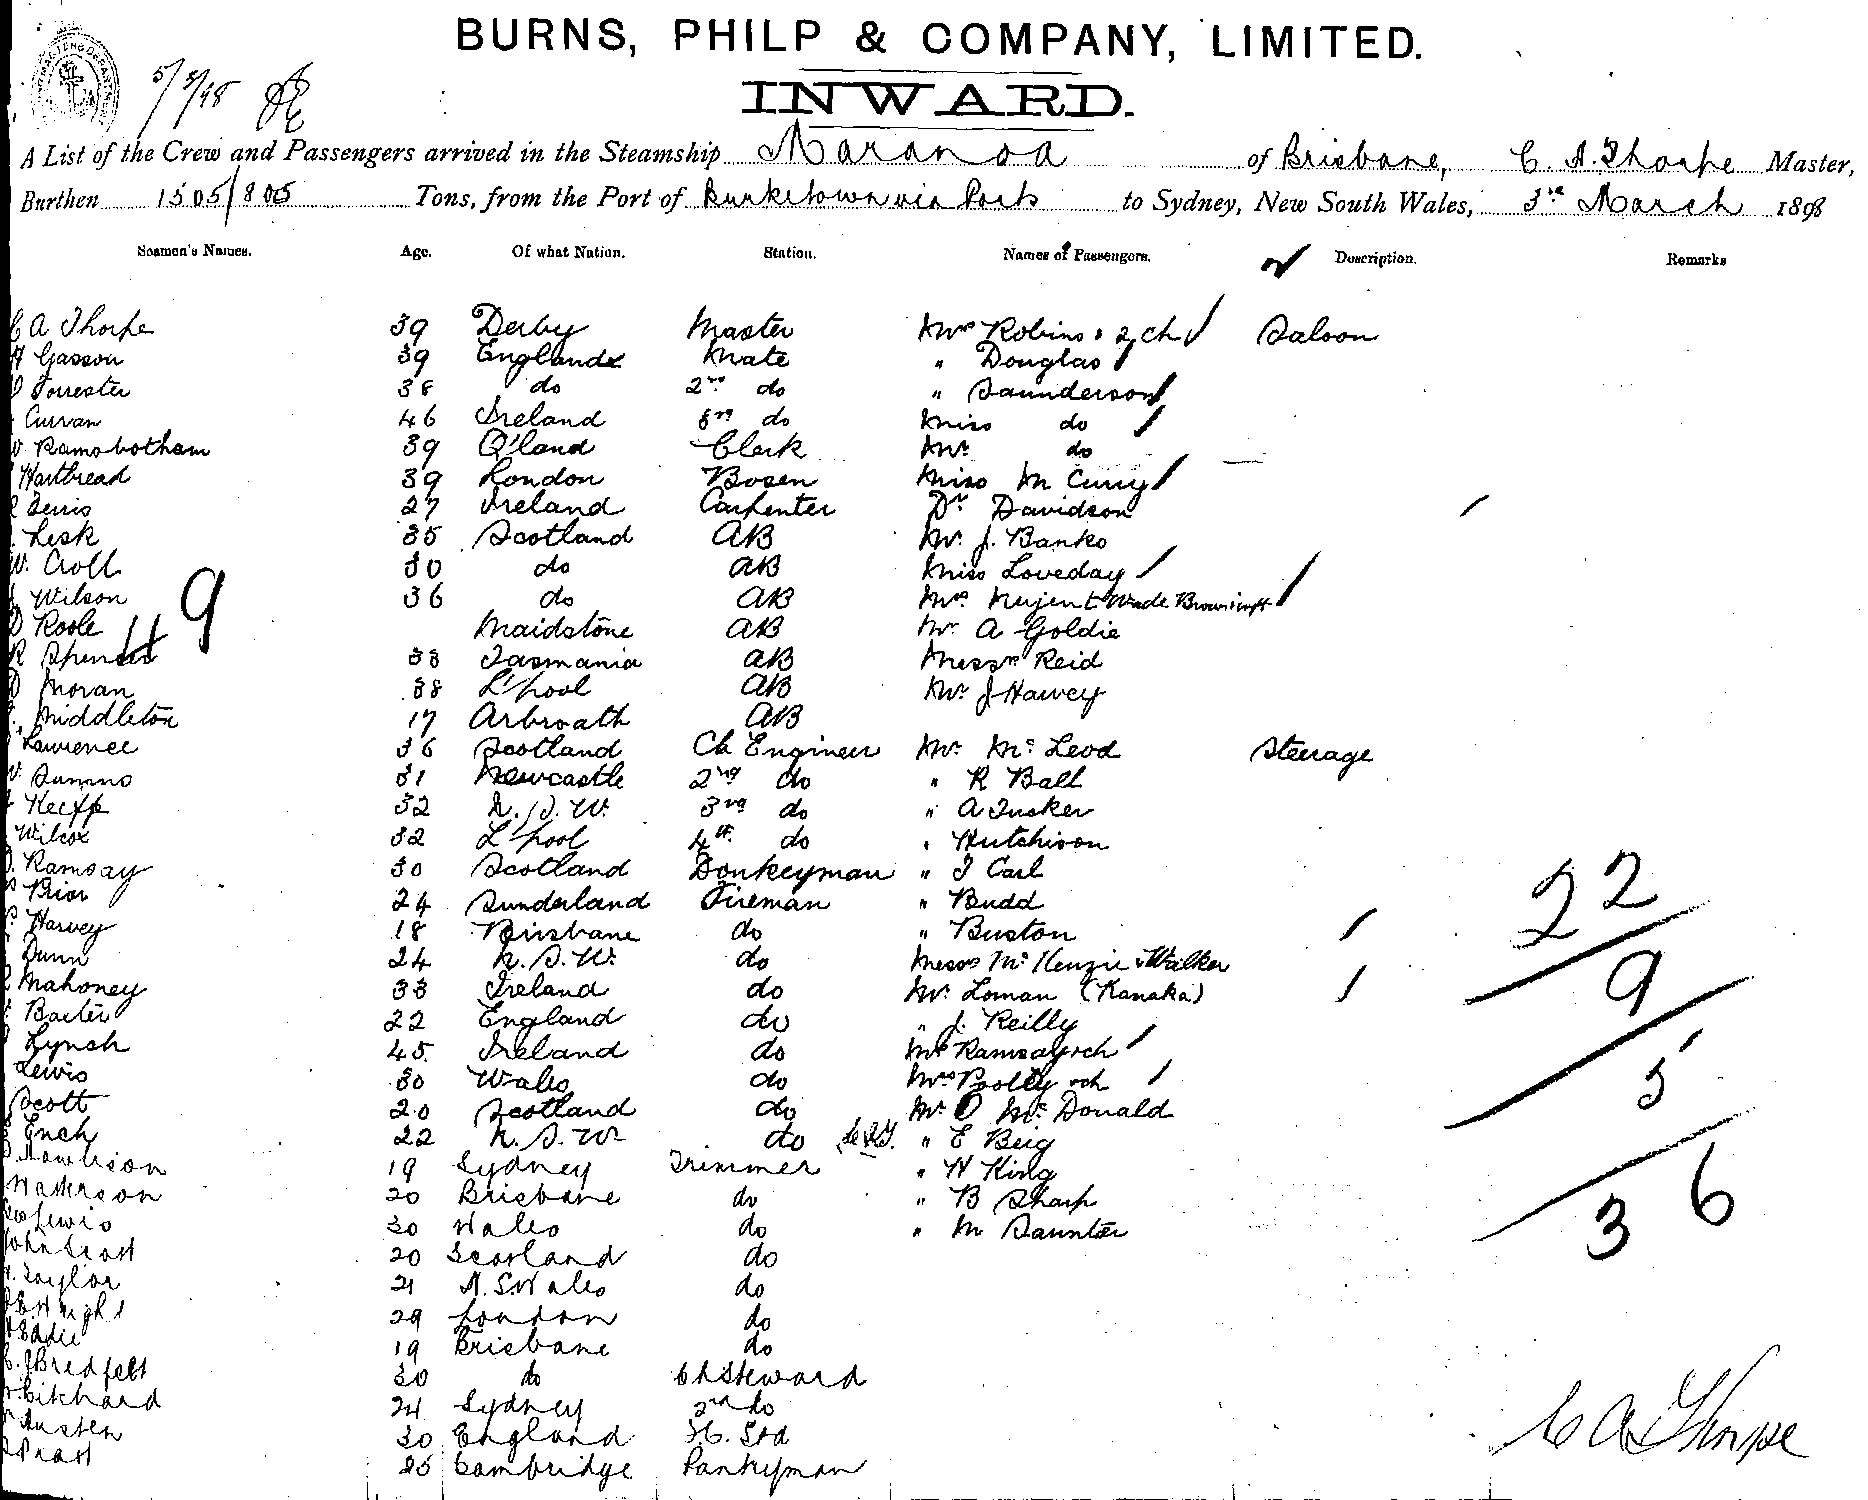 BURNS, PHILP & COMPANY, LIMITED.
5/3/98
INWARD.
A List of the Crew and Passengers arrived in the Steamship Maranoa of Brisbane, C. A. Thorpe Master,
Burthen 1505/805 Tons, from the Port of Burketown via Ports to Sydney, New South Wales, 3rd March 1898
Seamen's Names. Age. Of what Nation. Station. Names of Passengers. Description. Remarks
C A Thorpe 39 Derby Master Mrs Robins & 2 ch Saloon
Gasson 39 England Mate " Douglas
Forrester 38 do 2nd do " Saunderson
Curran 46 Ireland 3rd do Miss do
W. Ramsbotham 39 Q'land Clerk Mr. do
Hartbread 39 London Bosen Miss M Curry
Ferris 27 Ireland Carpenter Dr Davidson
Lisk 35 Scotland AB Mr. J. Banks
W. Croll 30 do AB Miss Loveday
Wilson 36 do AB Mrs. Nujent Wade
Roole Maidstone AB Mr. A Goldie
R 33 Tasmania AB Messrs Reid
Moran 38 L'pool AB Mr. J Harvey
Middleton 17 Arbroath AB
49
Lawrence 36 Scotland Ch Engineer Mr. McLeod Steerage
31 Newcastle 2nd do " R Ball
32 N.S.W. 3rd do " A Tusker
Wilcox 32 L'pool 4th do " Hutchison
Ramsay 30 Scotland Donkeyman " J Carl
Brior 24 Sunderland Fireman " Budd
Harvey 18 Brisbane do " Buston
Dunn 24 N.S.W. do Messrs McKenzie & Walker
Mahoney 33 Ireland do Mr. Loman (Kanaka)
Baxter 22 England do " J. Reilly
Lynch 45 Ireland do Mrs Ramsay & ch
Lewis 30 Wales do Mrs Bolly & ch
Scott 20 Scotland do Mr. O McDonald
Ench 22 N.S.W do " E Beig
19 Sydney Trimmer " H King
20 Brisbane do " B Sharp
Lewis 30 Wales do " M Saunter
John Scott 20 Scotland do
Taylor 21 N.S. Wales do
29 London do
Eddie 19 Brisbane do
Bredfelt 30 do Ch Steward
Pitchard 24 Sydney 2nd do
Austen 30 England Std
Pratt 25 Cambridge Pantryman
22
9
5
36
C A Thorpe